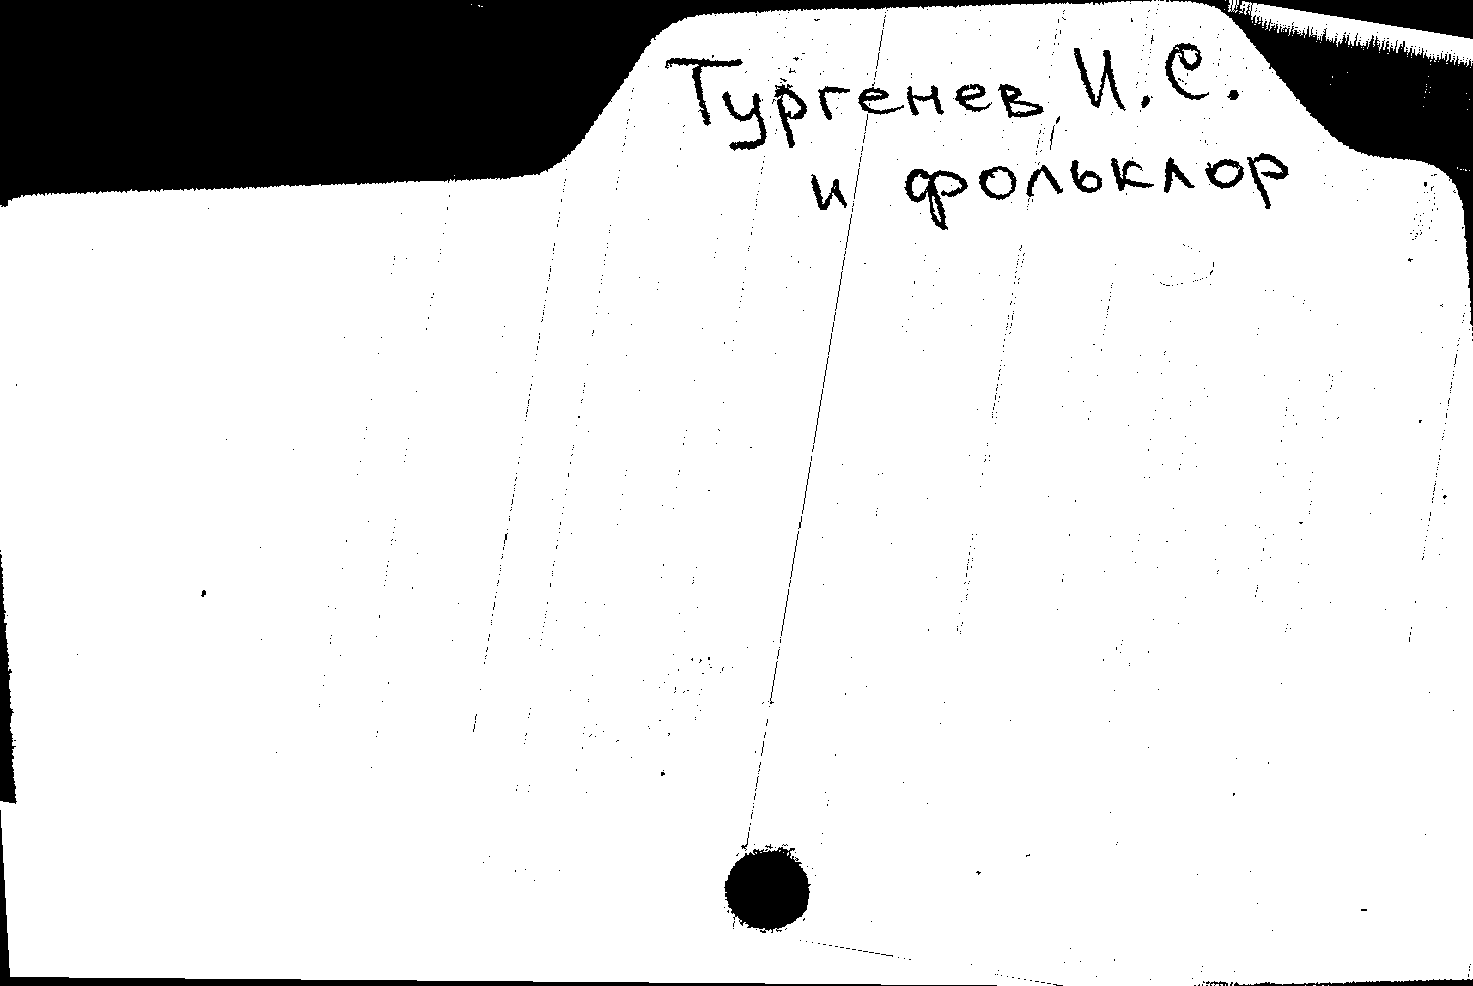 Тургенев И.С.
и фольклор